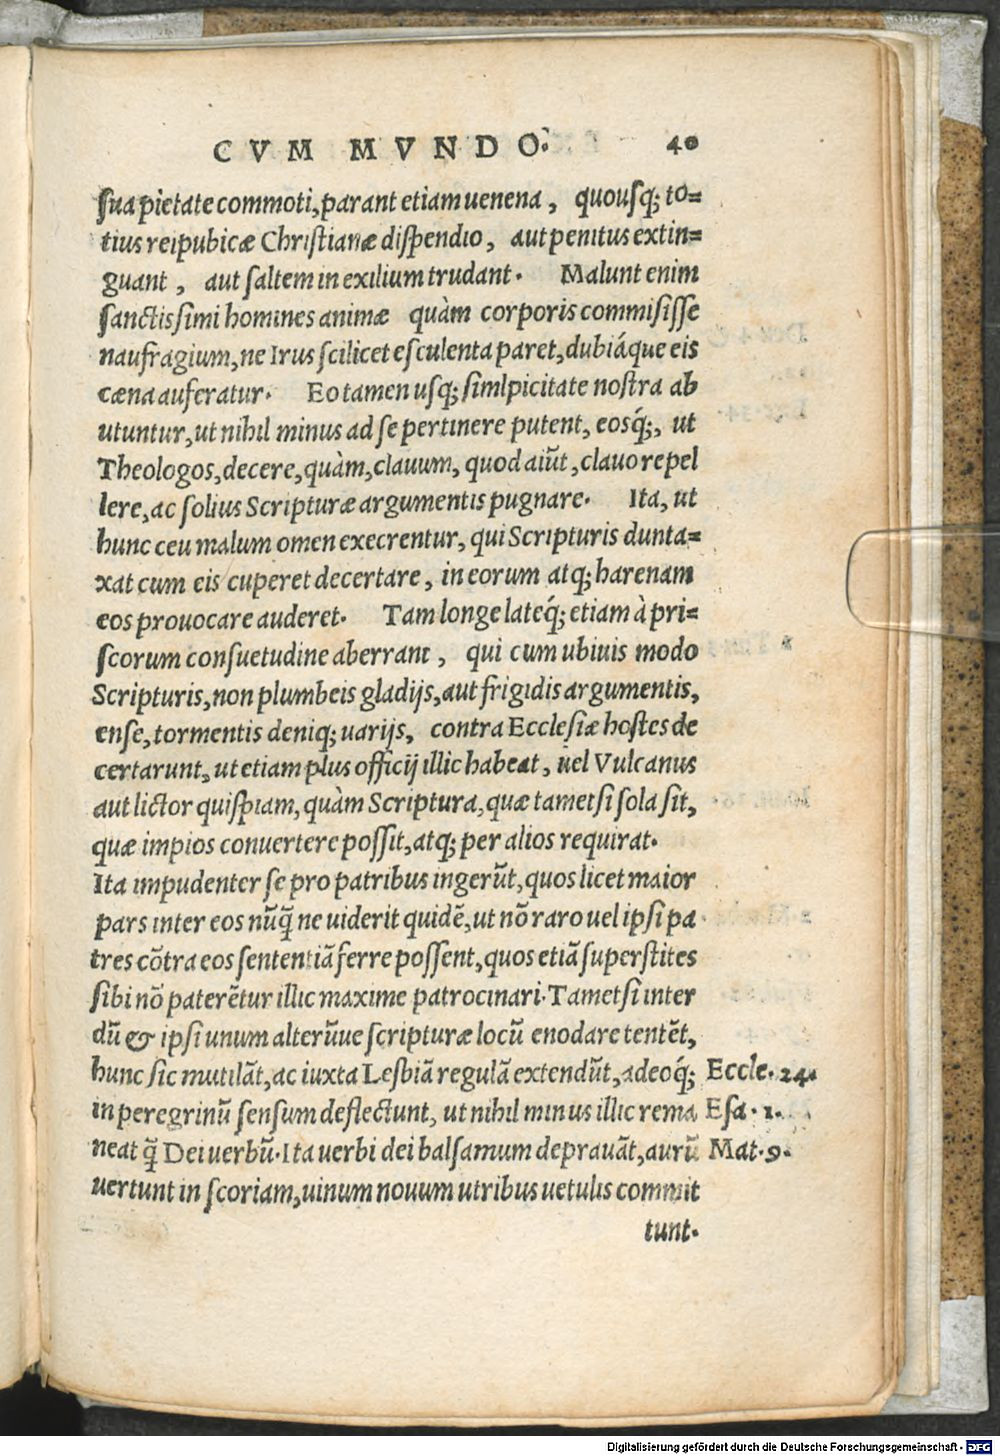 CVM MVNDO. 40
sua pietate commoti, parant etiam uenena, quousq; to-
tius reipubicæ Christianæ dispendio, aut penitus extin-
guant, aut saltem in exilium trudant. Malunt enim
sanctissimi homines animæ quàm corporis commisisse
naufragium, ne Irus scilicet esculenta paret, dubiáque eis
cæna auferatur. Eo tamen usq; simlpicitate nostra ab
utuntur, ut nihil minus ad se pertinere putent, eosq́;, ut
Theologos, decere, quàm, clauum, quod aiũt, clauo repel
lere, ac solius Scripturæ argumentis pugnare. Ita, ut
hunc ceu malum omen execrentur, qui Scripturis dunta-
xat cum eis cuperet decertare, in eorum atq; harenam
eos prouocare auderet. Tam longe lateq́; etiam à pri-
scorum consuetudine aberrant, qui cum ubiuis modo
Scripturis, non plumbeis gladijs, aut frigidis argumentis,
ense, tormentis deniq; uarijs, contra Ecclesiæ hostes de
certarunt, ut etiam plus officij illic habeat, uel Vulcanus
aut lictor quispiam, quàm Scriptura, quæ tametsi sola sit,
quæ impios conuertere possit, atq; per alios requirat.
Ita impudenter se pro patribus ingerũt, quos licet maior
pars inter eos nũq̃ ne uiderit quidẽ, ut nõ raro uel ipsi pa
tres cõtra eos sententiã ferre possent, quos etiã superstites
sibi nõ paterẽtur illic maxime patrocinari. Tametsi inter
dũ & ipsi unum alterũue scripturæ locũ enodare tentẽt,
hunc sic mutilãt, ac iuxta Lesbiã regulã extendũt, adeoq́; Eccle. 24.
in peregrinũ sensum deflectunt, ut nihil minus illic rema Esa. 1.
neat q̃ Dei uerbũ. Ita uerbi dei balsamum deprauãt, aurũ Mat. 9.
uertunt in scoriam, uinum nouum utribus uetulis commit
tunt.
Digitalisierung gefördert durch die Deutsche Forschungsgemeinschaft - DFG